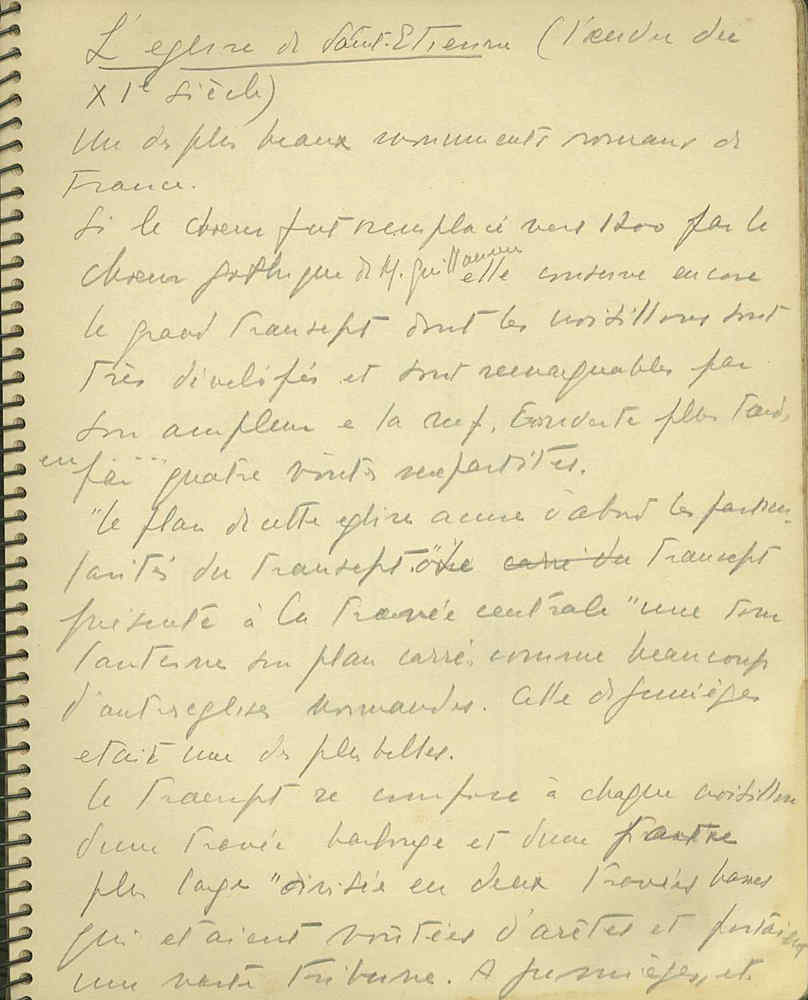 L'eglise de Saint-Etienne (l'ordre du
XIe siècle)
Un des plus beaux monuments romans de
France.
Si le choeur fut remplacé vers 1200 par le
choeur gothique de M. Guillaume elle conserve encore
le grand transept dont les croisillons sont
très dévelopés et sont remarquables par
son ampleur e la nef, couverte plus tard,
en par quatre voûtes sexpartites.
"Le plan de cette eglise accuse d'abord les particu-
larités du transept." Le carré du transept
présente à la travée centrale "une tour
lanterne sur plan carré, comme beaucoup
d'autres eglises normandes. Celle de Jumièges
etait une des plus belles.
Le transept se compose à chaque croisillon
d'une travée barlongue et d'une
plus large "divisée en deux travées basses
qui etaient voûtées d'arêtes et portaient
une vaste tribune. A Jumièges, et